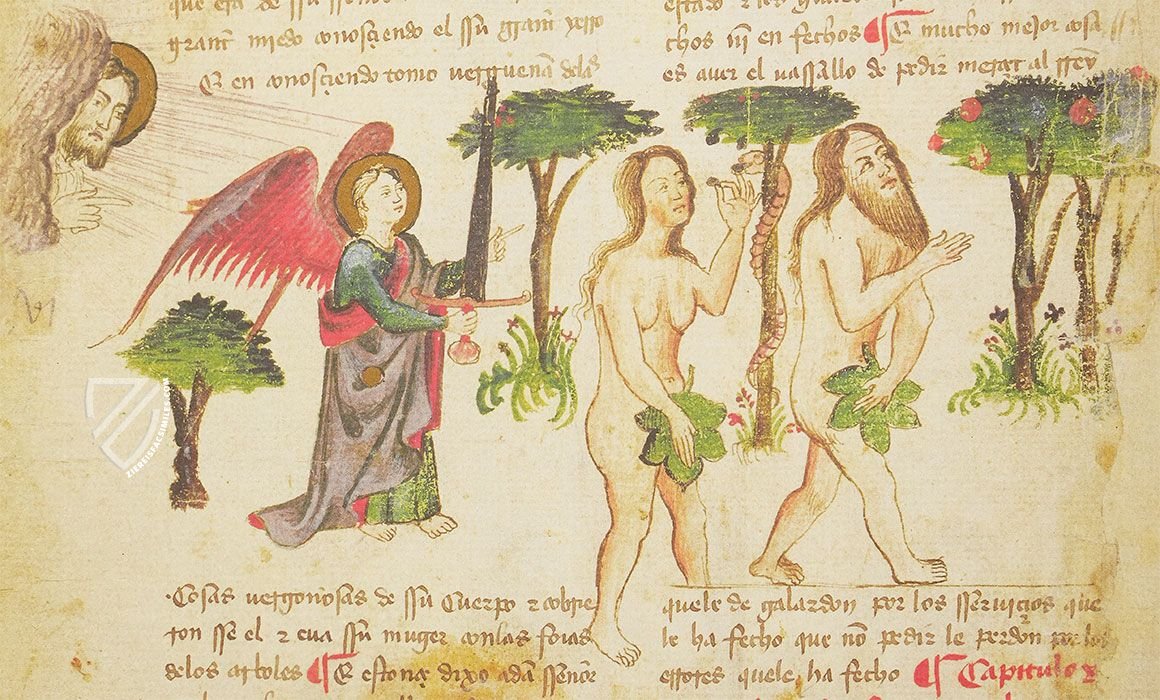 que era de ssu sseñor
grant miedo conosçiendo el ssu grant yerro
E en conosçiendo tomo verguença delas
estado
chos nj en fechos ¶ E mucho mejor cosa
es aver el vassallo de pedir merçet al señor
Cosas vergonosas de ssu Cuerpo z cobrie
ron sse el z eua ssu muger conlas foias
delos arboles ¶ E estonçe dixo adam señor
quele de galardon por los sseruiçios que
le ha fecho que non pedir le perdon por los
errores quele ha fecho ¶ Capitulo x
ZIEREISFACSIMILES.COM